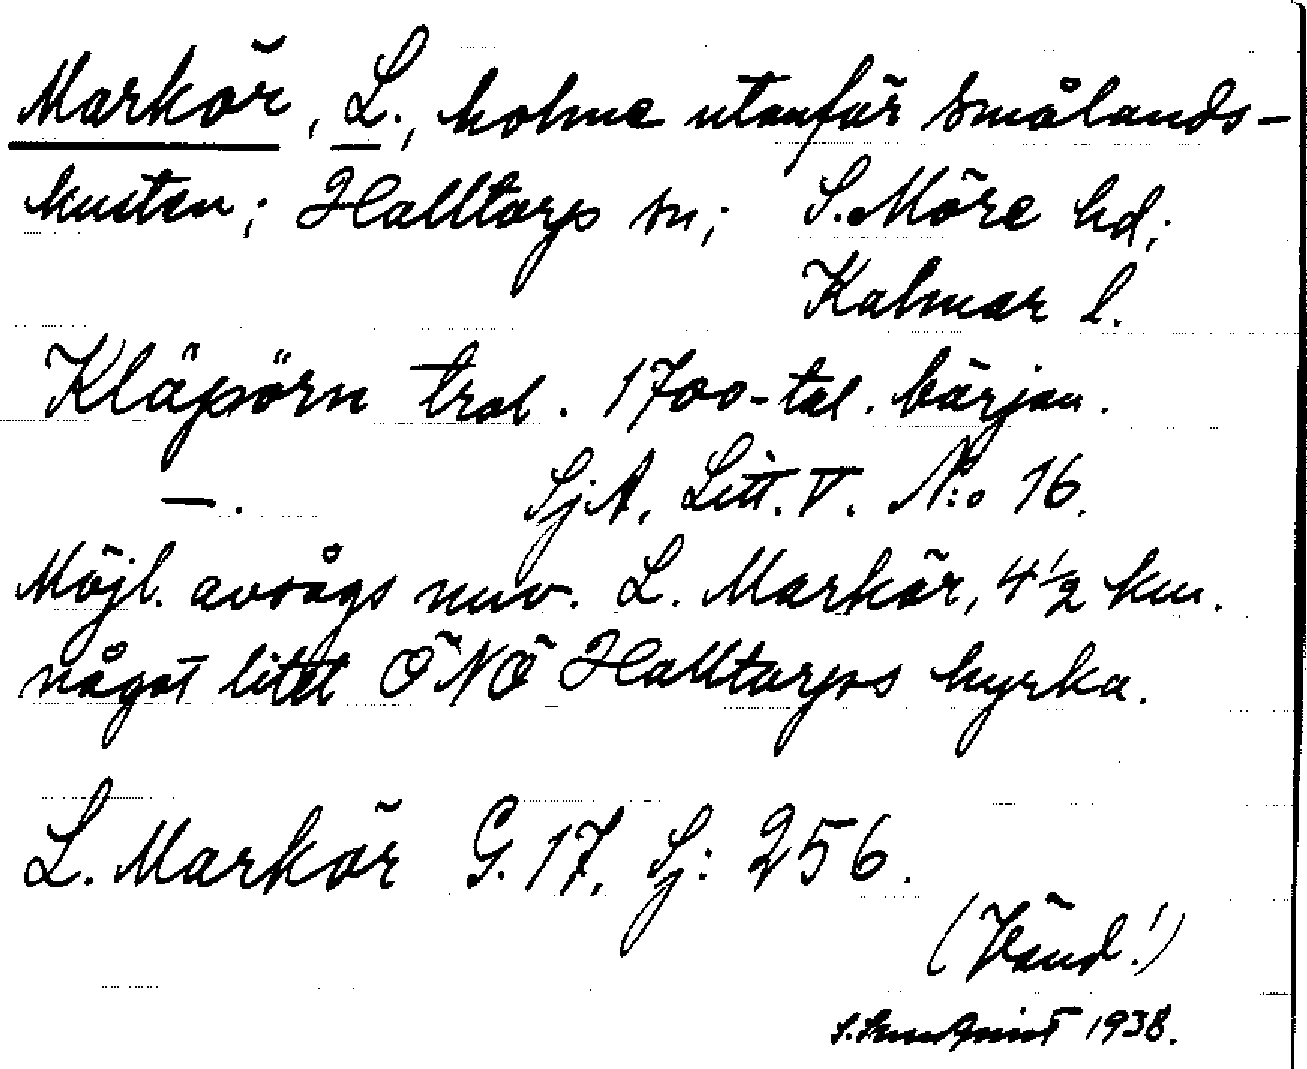 Markör, L., holme utanför Smålands-
kusten; Halltorps sn; S. Möre hd;
Kalmar l.
Kläpörn trol. 1700-tal. början.
—. SjA, Litt. V. N:o 16.
Möjl. avsågs nuv. L. Markör, 4½ km.
något litet ÖNÖ Halltorps kyrka.
L. Markör G. 17, Sj: 256.
(Vänd!)
1938.